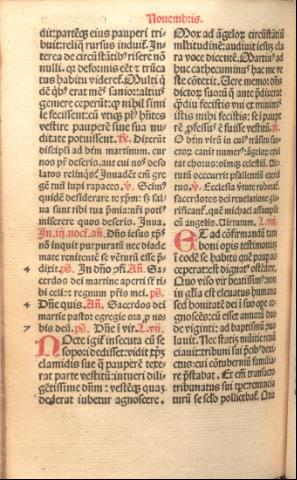 Novembris.
dit: partẽ eius pauperi tri-
buit: reliq̃ rursus induit̃. In-
terea de circũstãtibꝰ risere nõ
nulli. qꝛ deformis eẽt ⁊ trũca-
tus habitu videret̃. Multi q̃
dẽ qbꝰ erat mẽs sanior: altiꝰ
gemere ceperũt: qꝛ nihil simi-
le fecissent: cũ vtiqꝫ plꝰ hñtes
vestire pauperẽ sine sua nu-
ditate potuissent. ℟. Dixerũt
discipli ad btm̃ martinum. cur
nos pr̃ deseris. aut cui nos deso
latos relinq̃s? Inuadẽt em̃ gre
gẽ tuũ lupi rapaces. ℣. Scimꝰ
quidẽ desiderare te xp̃m: sꝫ sal
ua sunt tibi tua p̃mia: nr̃i poti
miserere quos deseris. Inua.
In .iij. noct̃. an̄. Dñs iesus xp̃s
nõ inquit purpuratũ nec diade
mate renitentẽ se vẽturũ esse p̃
dixit. ps̄. In dño ↄ̃fi. An̄. Sa-
cerdos dei martine aperti sr̃ ti-
bi celi: ⁊ regnum pr̃is mei. ps̄.
Dñe quis. An̄. Sacerdos dei
martine pastor egregie ora p̃ no
bis deũ. ps̄. Dñe ĩ vir. L. vij.
Nocte igit̃ insecuta cũ se
sopori dedisset: vidit xp̃ꝫ
clamidis sue q̃ pauperẽ texe-
rat parte vestitũ: intueri dili-
gẽtissime dñm: vestẽqꝫ quaꝫ
dederat iubetur agnoscere.
Mox ad ãgeloꝝ circũstãtiũ
multitudinẽ: audiuit iesũ cla-
ra voce dicentẽ. Martinꝰ ad-
huc cathecuminꝰ hac me ve-
ste cõtexit. Uere memor dñs
dictoꝝ suoꝝ q̃ ante p̃dixerat
q̃diu fecistis vni ex minimꝭ
istis mihi fecistis: se ĩ paupe
rẽ ↄ̃fessꝰ ẽ fuisse vestitũ. ℟.
O btm̃ virũ in cuiꝰ trãsitu san-
ctoꝝ canit numerꝰ: ãgeloꝝ exul
tat chorus: oĩmqꝫ celestiũ vir-
tutũ occurrit psallentiũ exerci
tus. ℣. Ecclesia virtute roborat̃.
sacerdotes dei reuelatione glo-
rificant̃. quẽ michael assumpsit
cũ angelis. Uirtutum. L. viij.
Et ad cõfirmãdũ tam
boni opis testimoniũ
ĩ eodẽ se habitu quẽ paup ac
ceperat: est dignatꝰ ostẽdere.
Quo viso vir beatissimꝰ: non
in gl̃ia est elatus humana:
sed bonitatẽ dei ĩ suo ope co-
gnoscẽs: cũ esset annoꝝ duo
de viginti: ad baptismũ ↄuo
lauit. Nec statĩ militie renũ
ciauit: tribuni sui p̃cibꝰ deui-
ctus: cui cõtubernũ familia-
re p̃stabat. Et em̃ transacto
tribunatus sui tp̃e: renuncia-
turũ se sclo pollicebat̃. Qua